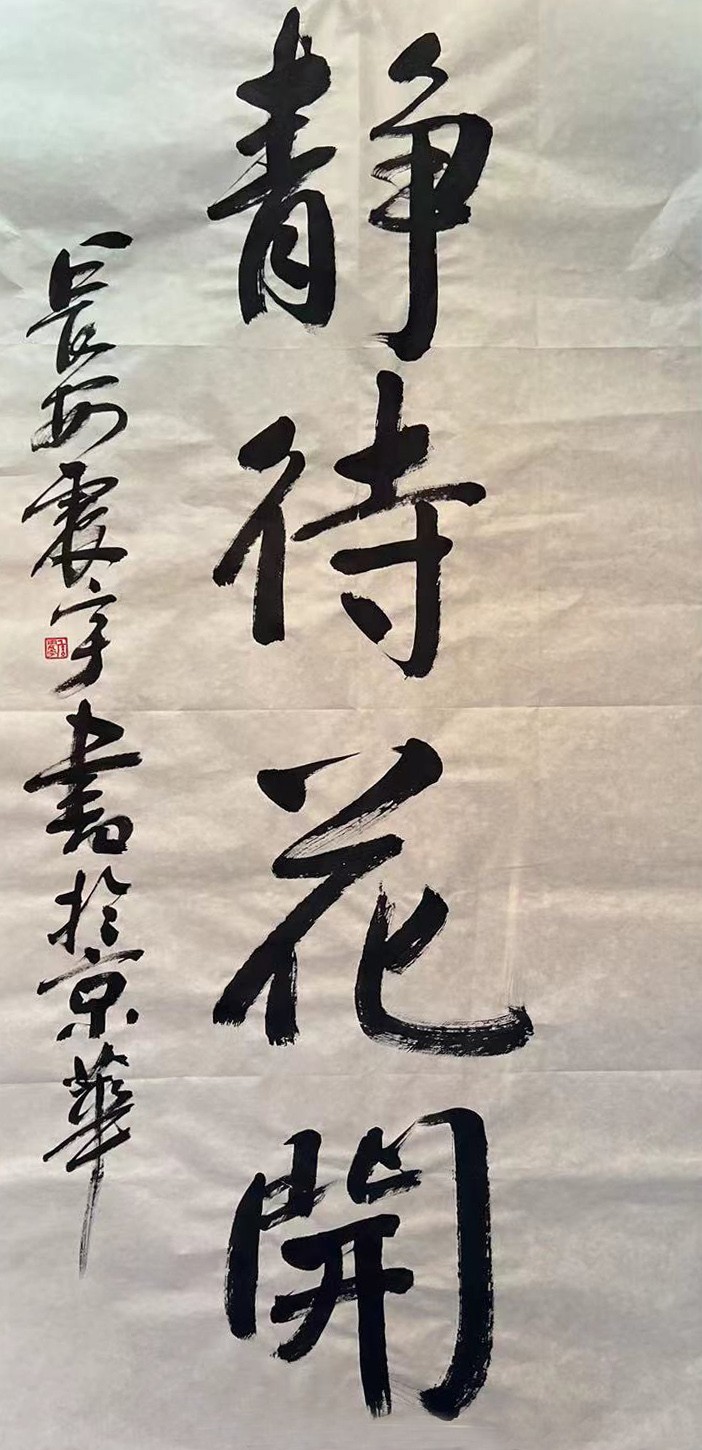 静待花開
長安震宇書於京華